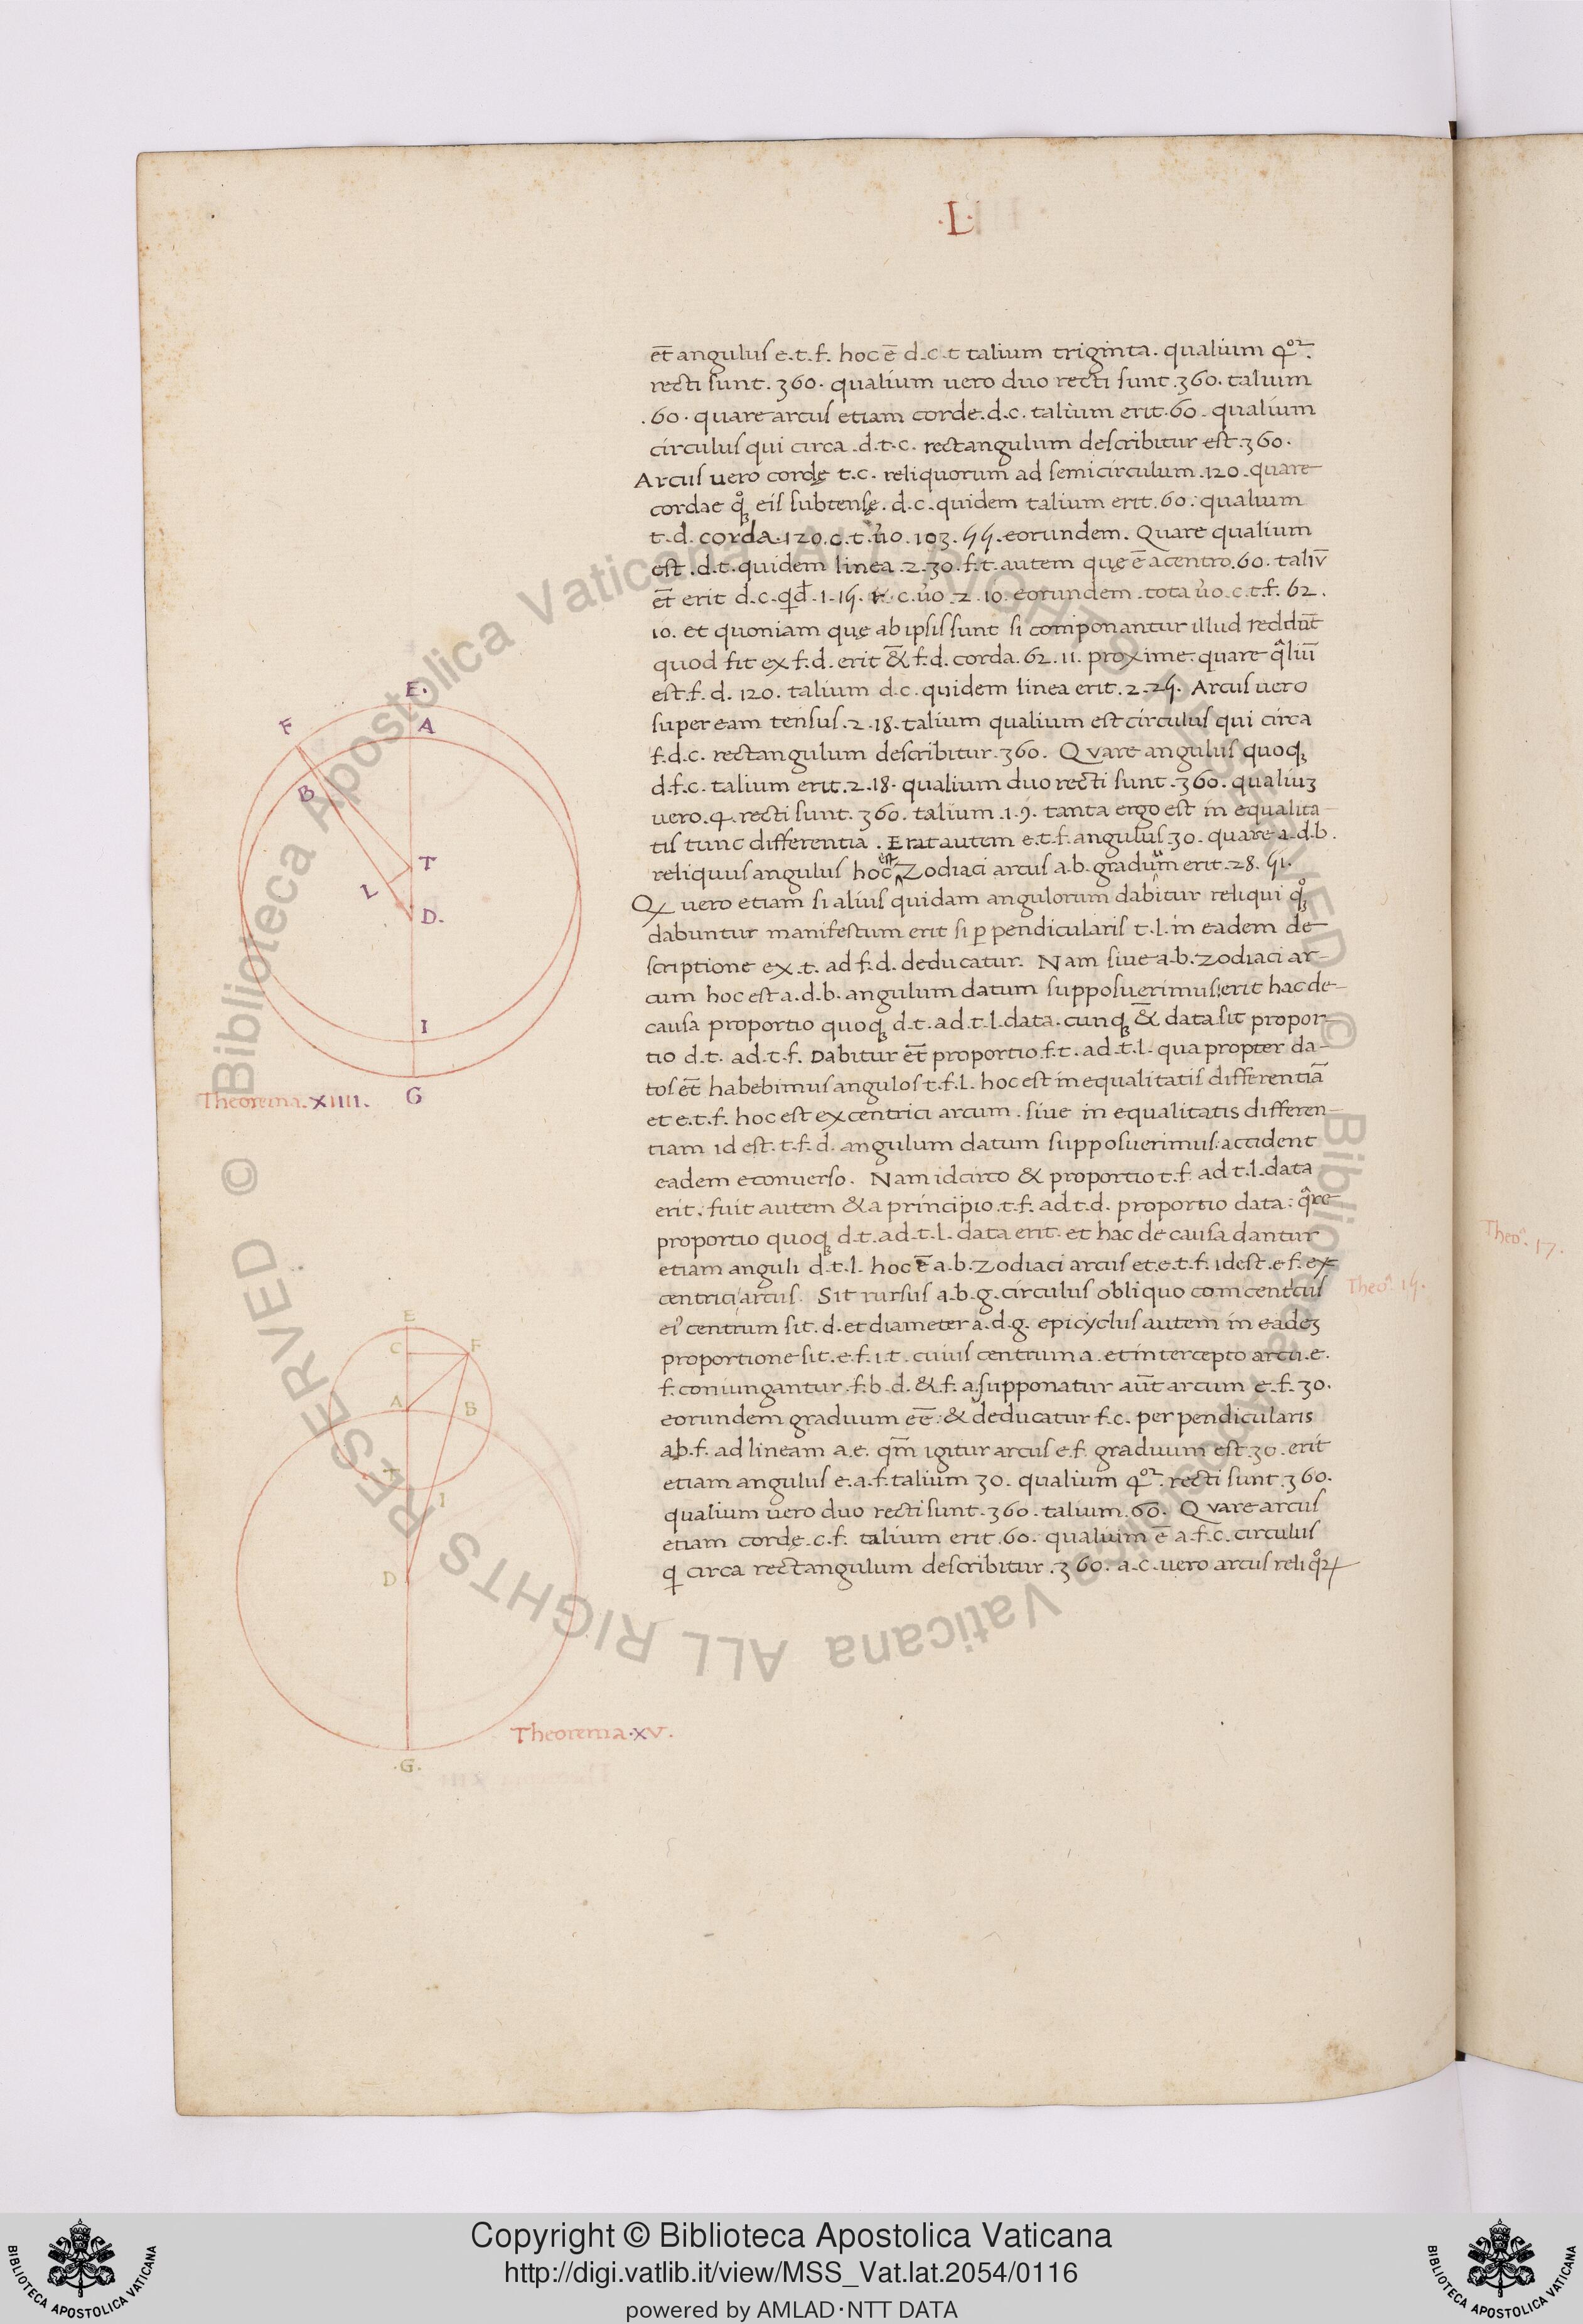 ·L·
et̄ angulus e.t.f. hoc ē d.c.t talium triginta. qualium 4ᵒʳ.
recti sunt. 360. qualium uero duo recti sunt .360. talium
.60. quare arcus etiam corde .d.c. talium erit .60. qualium
circulus qui circa .d.t.c. rectangulum describitur est .360.
Arcus uero cordę t.c. reliquorum ad semicirculum .120. quare
cordae qꝫ eis subtensę. d.c. quidem talium erit .60. qualium
t.d. corda .120. c.t. ůo .103. 55. eorundem. Quare qualium
est .d.t. quidem linea .2.30. f.t. autem quę ē acentro .60. taliū
et̄ erit d.c. qͥd .1.15. t.c. ůo .2.10. eorundem .tota ůo .c.t.f. 62.
10. et quoniam quę ab ipsis sunt si componantur illud reddūt
quod fit ex f.d. erit &̄ f.d. corda .62.11. proxime. quare qͣliū
est .f.d. 120. talium d.c. quidem linea erit .2.25. Arcus uero
super eam tensus .2.18. talium qualium est circulus qui circa
f.d.c. rectangulum describitur .360. Quare angulus quoqꝫ
d.f.c. talium erit .2.18. qualium duo recti sunt .360. qualiuꝫ
uero .4. recti sunt. 360. talium .1.9. tanta ergo est in equalita-
tis tunc differentia . Erat autem e.t.f. angulus .30. quare a.d.b.
reliquus angulus hoc est Zodiaci arcus a.b. graduum erit .28. 51.
Qꝫ uero etiam si alius quidam angulorum dabitur reliqui qꝫ
dabuntur manifestum erit si ꝑpendicularis t.l. in eadem de
scriptione ex .t. ad f.d. deducatur. Nam siue a.b. zodiaci ar-
cum hoc est a.d.b. angulum datum supposuerimus: erit hac de-
causa proportio quoqꝫ d.t. ad .t.l. data. cunqꝫ &̄ data sit propor
tio d.t. ad .t.f. Dabitur et̄ proportio f.t. ad .t.l. qua propter da-
tos et̄ habebimus angulos t.f.l. hoc est inequalitatis differentiā
et e.t.f. hoc est excentrici arcum . siue in equalitatis differen-
tiam id est. t.f.d. angulum datum supposuerimus: accident
eadem econuerso. Nam idcirco & proportio t.f. ad t.l. data
erit. fuit autem & a principio .t.f. ad t.d. proportio data: qͣre
proportio quoqꝫ d.t. ad .t.l. data erit. et hac de causa dantur
etiam anguli d.t.l. hoc ē a.b. zodiaci arcus et .e.t.f. idest .e f. ex
centrici arcus. Sit rursus a.b.g. circulus obliquo comcent'cus
ei' centrum sit. d. et diameter a.d.g. epicyclus autem in eadeꝫ
proportione sit .e.f.i.t. cuius centrum a. et intercepto arcu .e.
f. coniungantur .f.b.d. & f.a. supponatur aūt arcum e.f. 30.
eorundem graduum eē: & deducatur f.c. perpendicularis
ab .f. ad lineam a.e. qm̄ igitur arcus e.f. graduum est .30. erit
etiam angulus e.a.f. talium 30. qualium 4ᵒʳ. recti sunt .360.
qualium uero duo recti sunt .360. talium .60. Quare arcus
etiam cordę .c.f. talium erit .60. qualium ē a.f.c. circulus
qͥ circa rectangulum describitur .360. a.c. uero arcus reliqͦꝝ
E.
F
A
B
T
L
D.
I
G
Theorema. XIIII.
E
C
F
A
B
T
I
D
.G.
Theorema .XV.
Theoᵃ. 15.
Theoᵃ. 17.
© Biblioteca Apostolica Vaticana ALL RIGHTS RESERVED © Biblioteca Apostolica Vaticana ALL RIGHTS RESERVED
BIBLIOTECA APOSTOLICA VATICANA
Copyright © Biblioteca Apostolica Vaticana
http://digi.vatlib.it/view/MSS_Vat.lat.2054/0116
powered by AMLAD·NTT DATA
BIBLIOTECA APOSTOLICA VATICANA